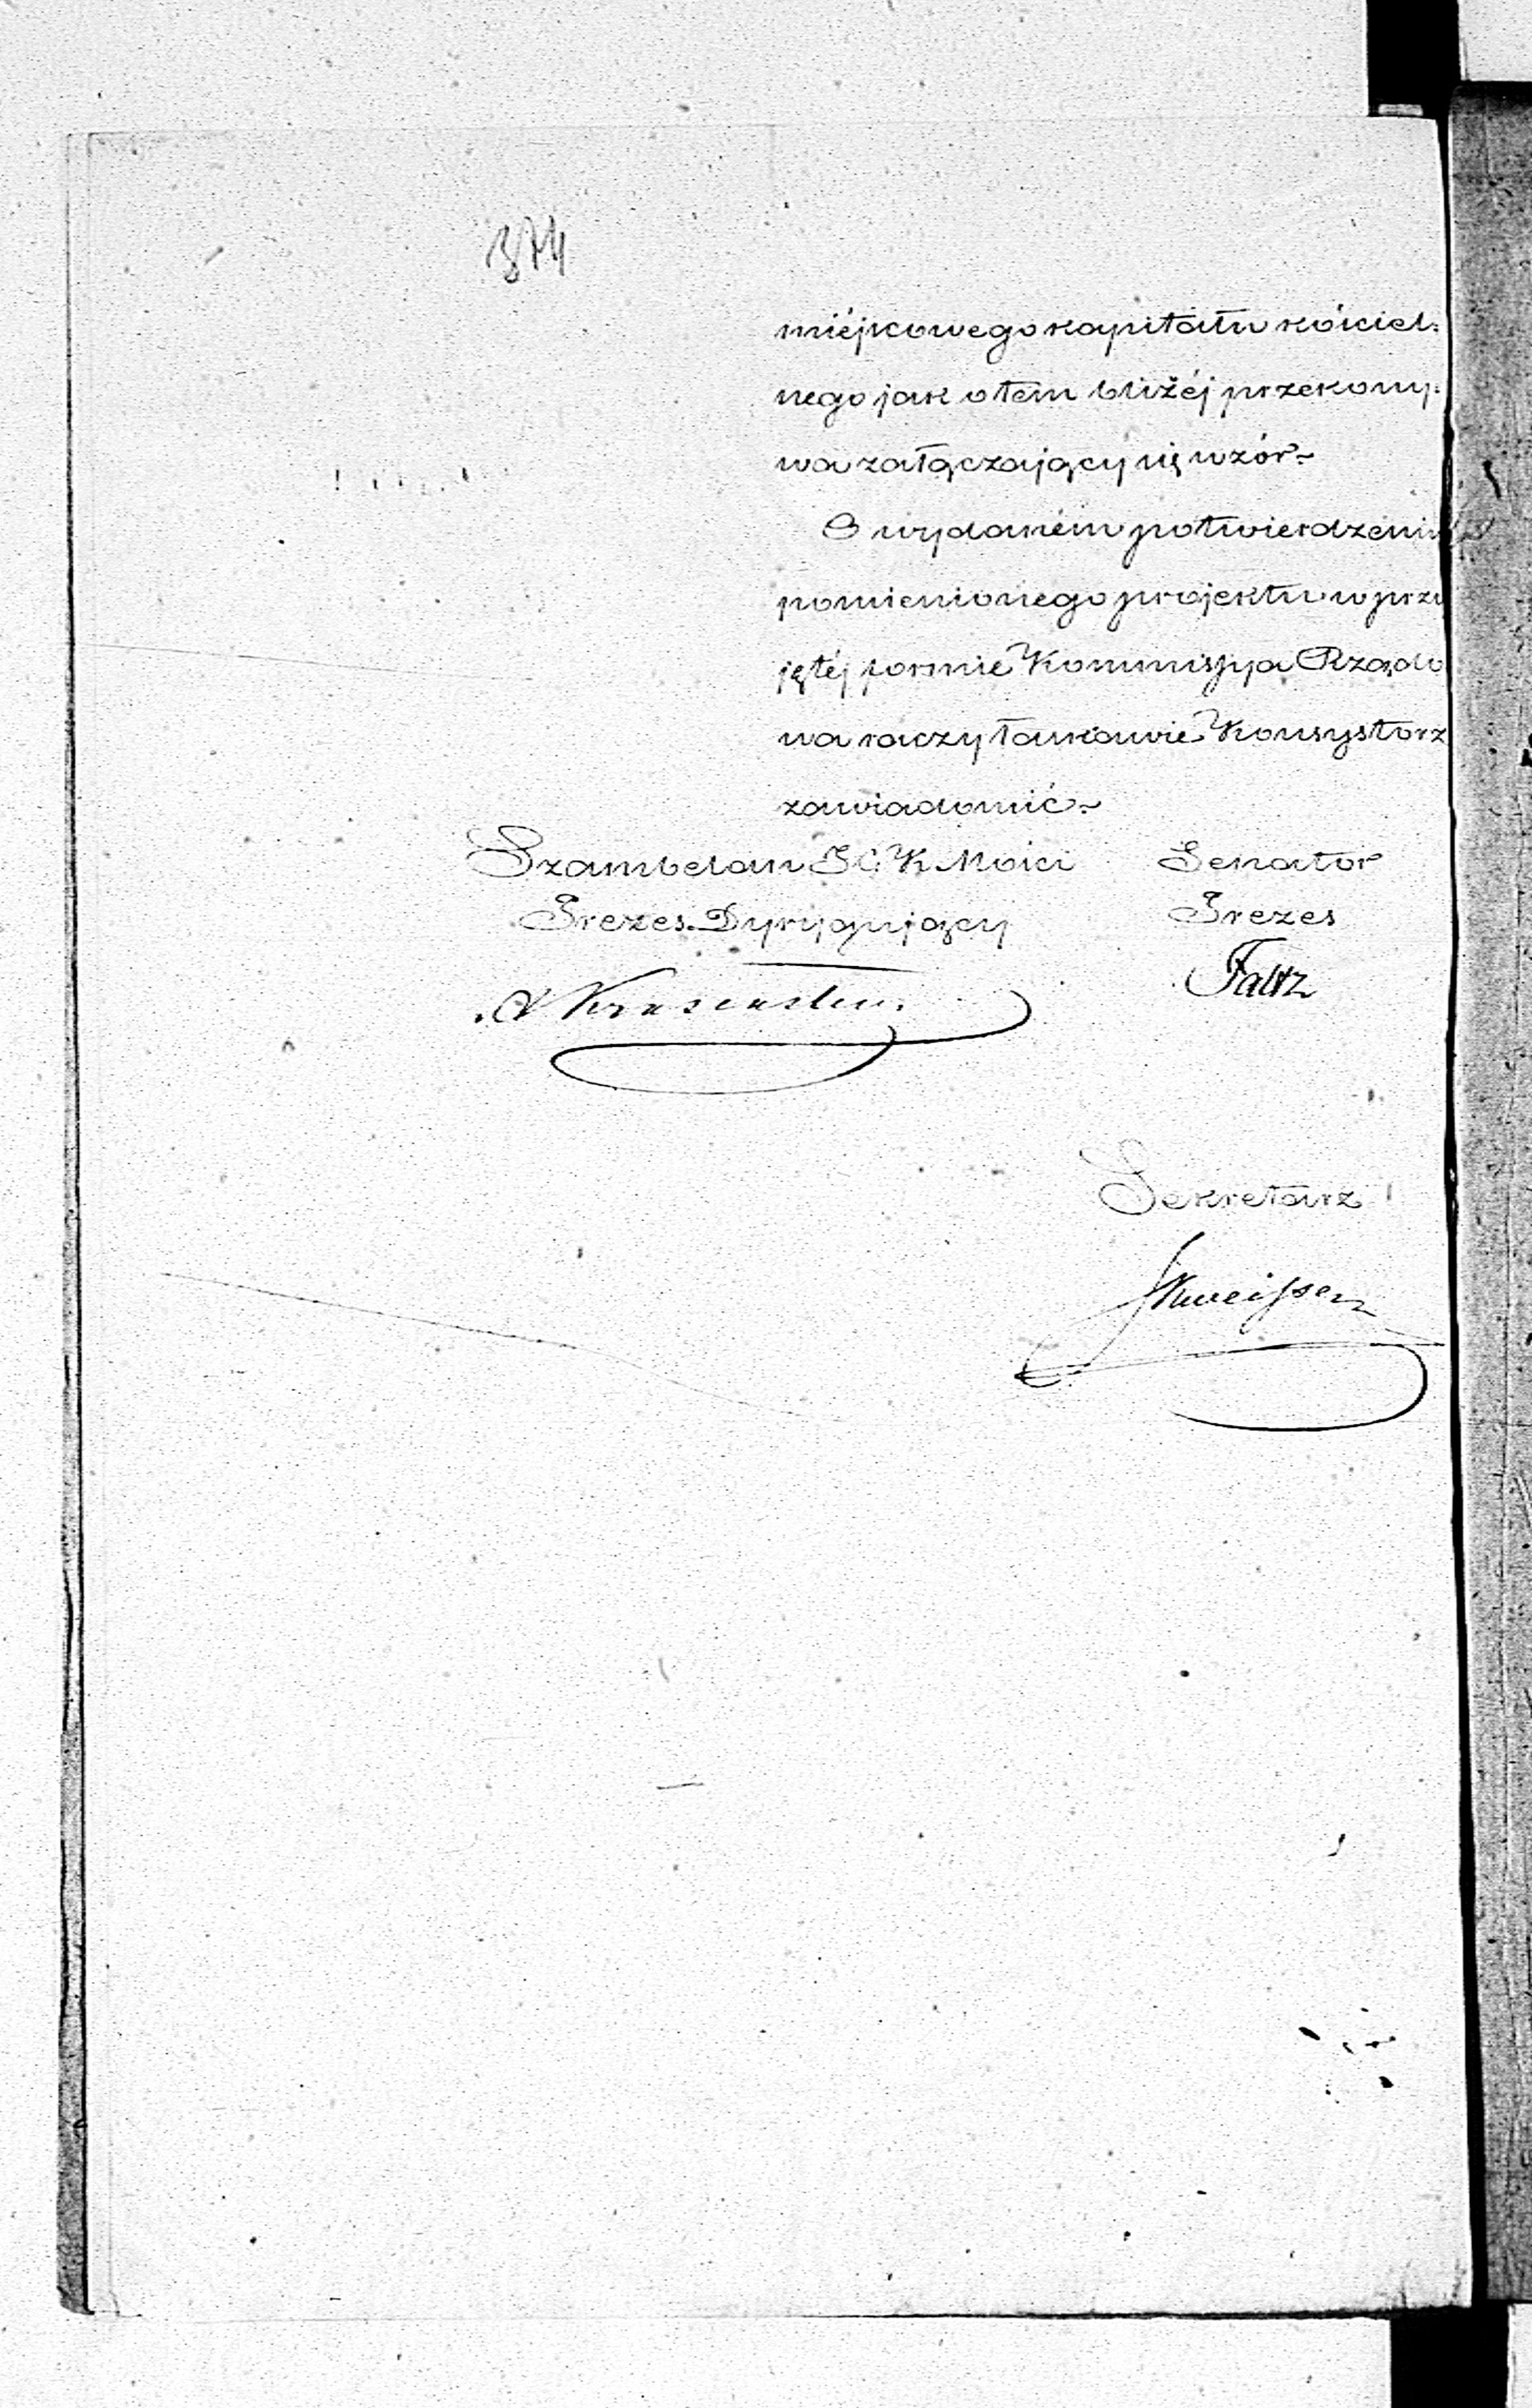 374
miéjscowego kapitału kościel:
nego jak o tem bliżéj przekony:
wa załączający się wzór.~
O wydaném potwierdzeniu
pomienionego projektu w przy
jętéj formie Kommissya Rządo
wa raczy łaskawie Konsystorz
zawiadomić.~
Szambelan J C K Mości Senator
Prezes Dyrygujący Prezes
Faltz
Sekretarz